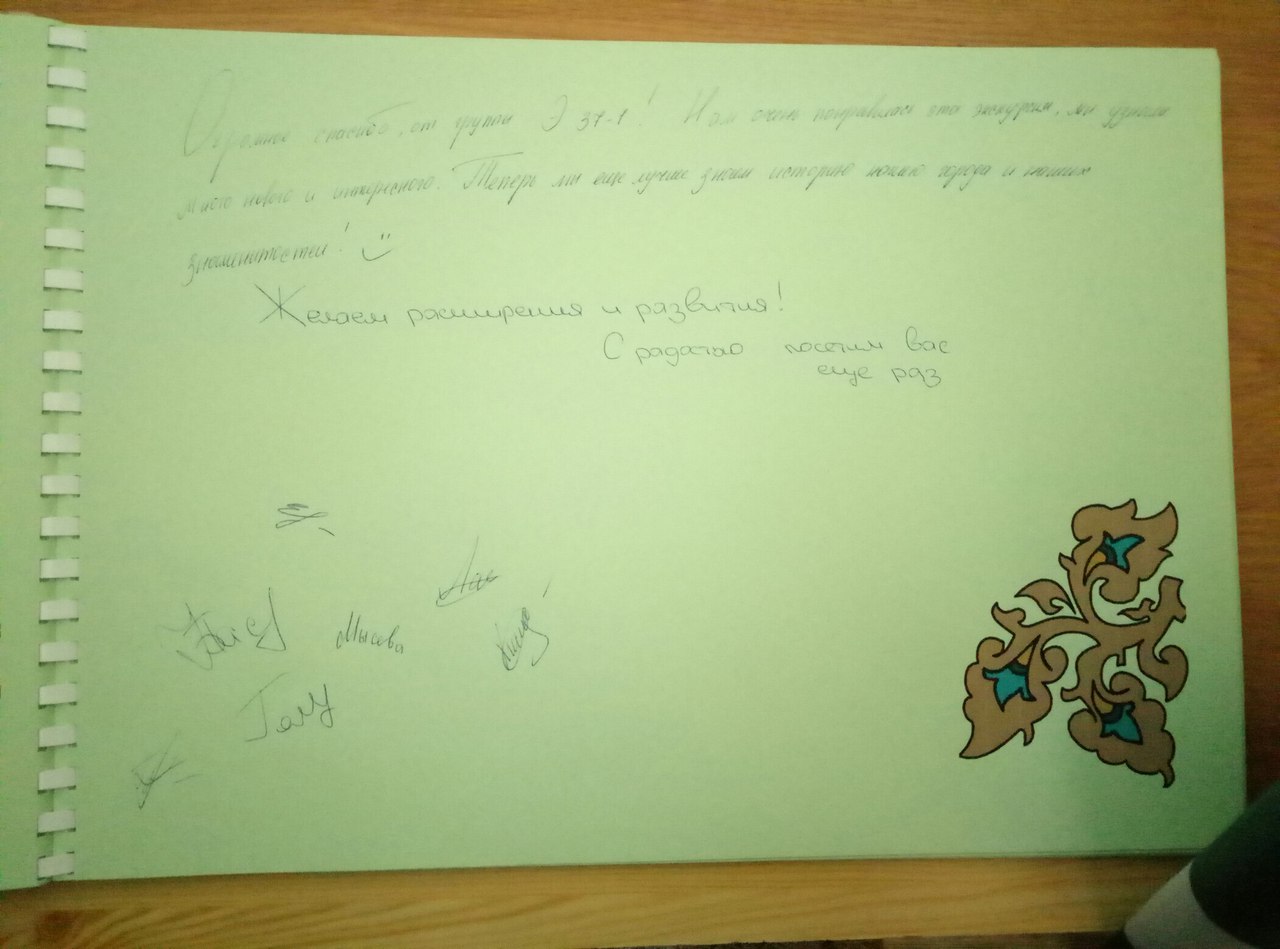 Огромное спасибо, от группы Э 37-1! Нам очень понравилась эта экскурсия, мы узнали
много нового и интересного. Теперь мы еще лучше знаем историю нашего города и наших
знаменитостей! :)
Желаем расширения и развития!
С радостью посетим вас
еще раз
Мысова